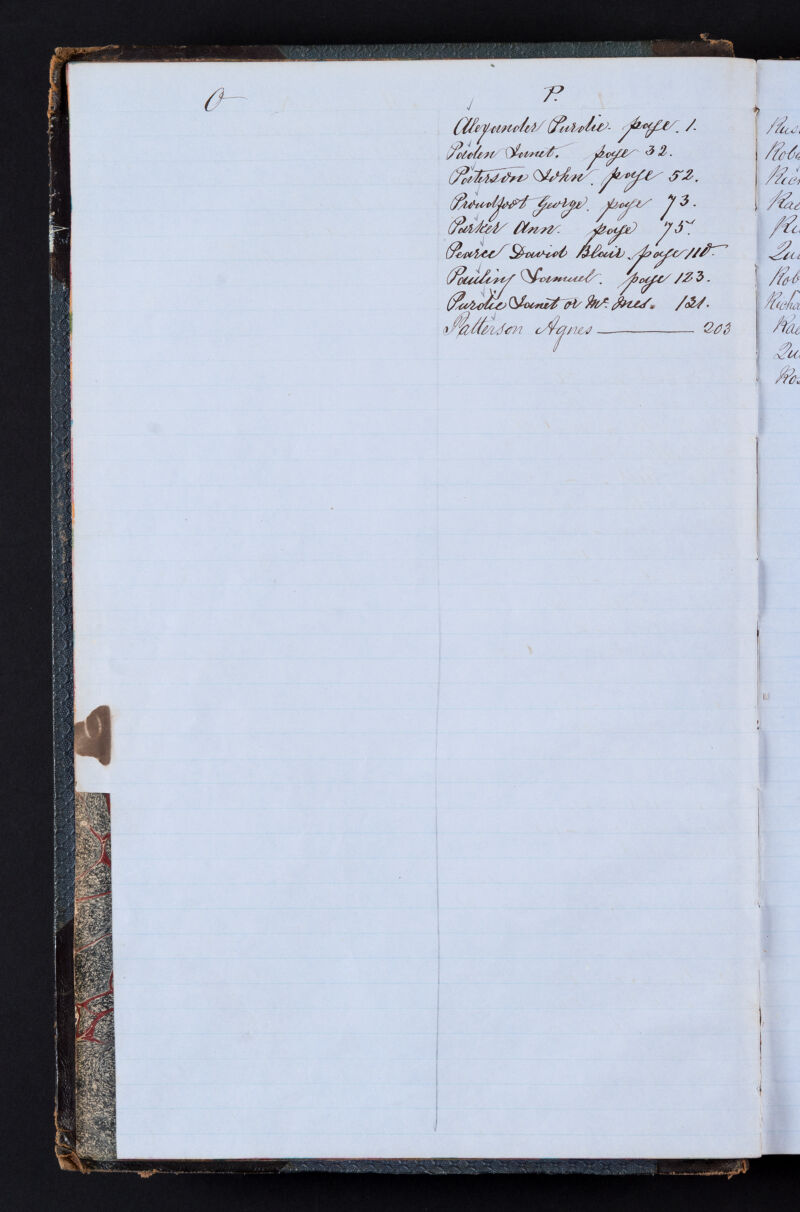 O
P.
Alexander Purdie. page. 1.
Paden Janet. page 32.
Paterson John. page 52.
Proudfoot George. page 73.
Parker Ann. page 75.
Pearce David Blair. page 110.
Pauling Samuel. page 123.
Purdie Janet or Mc Ines. 131.
Patterson Agnes 203
Rus
Rob
Rich
Rae
Qu
Rob
Richa
Rae
Qu
Ros